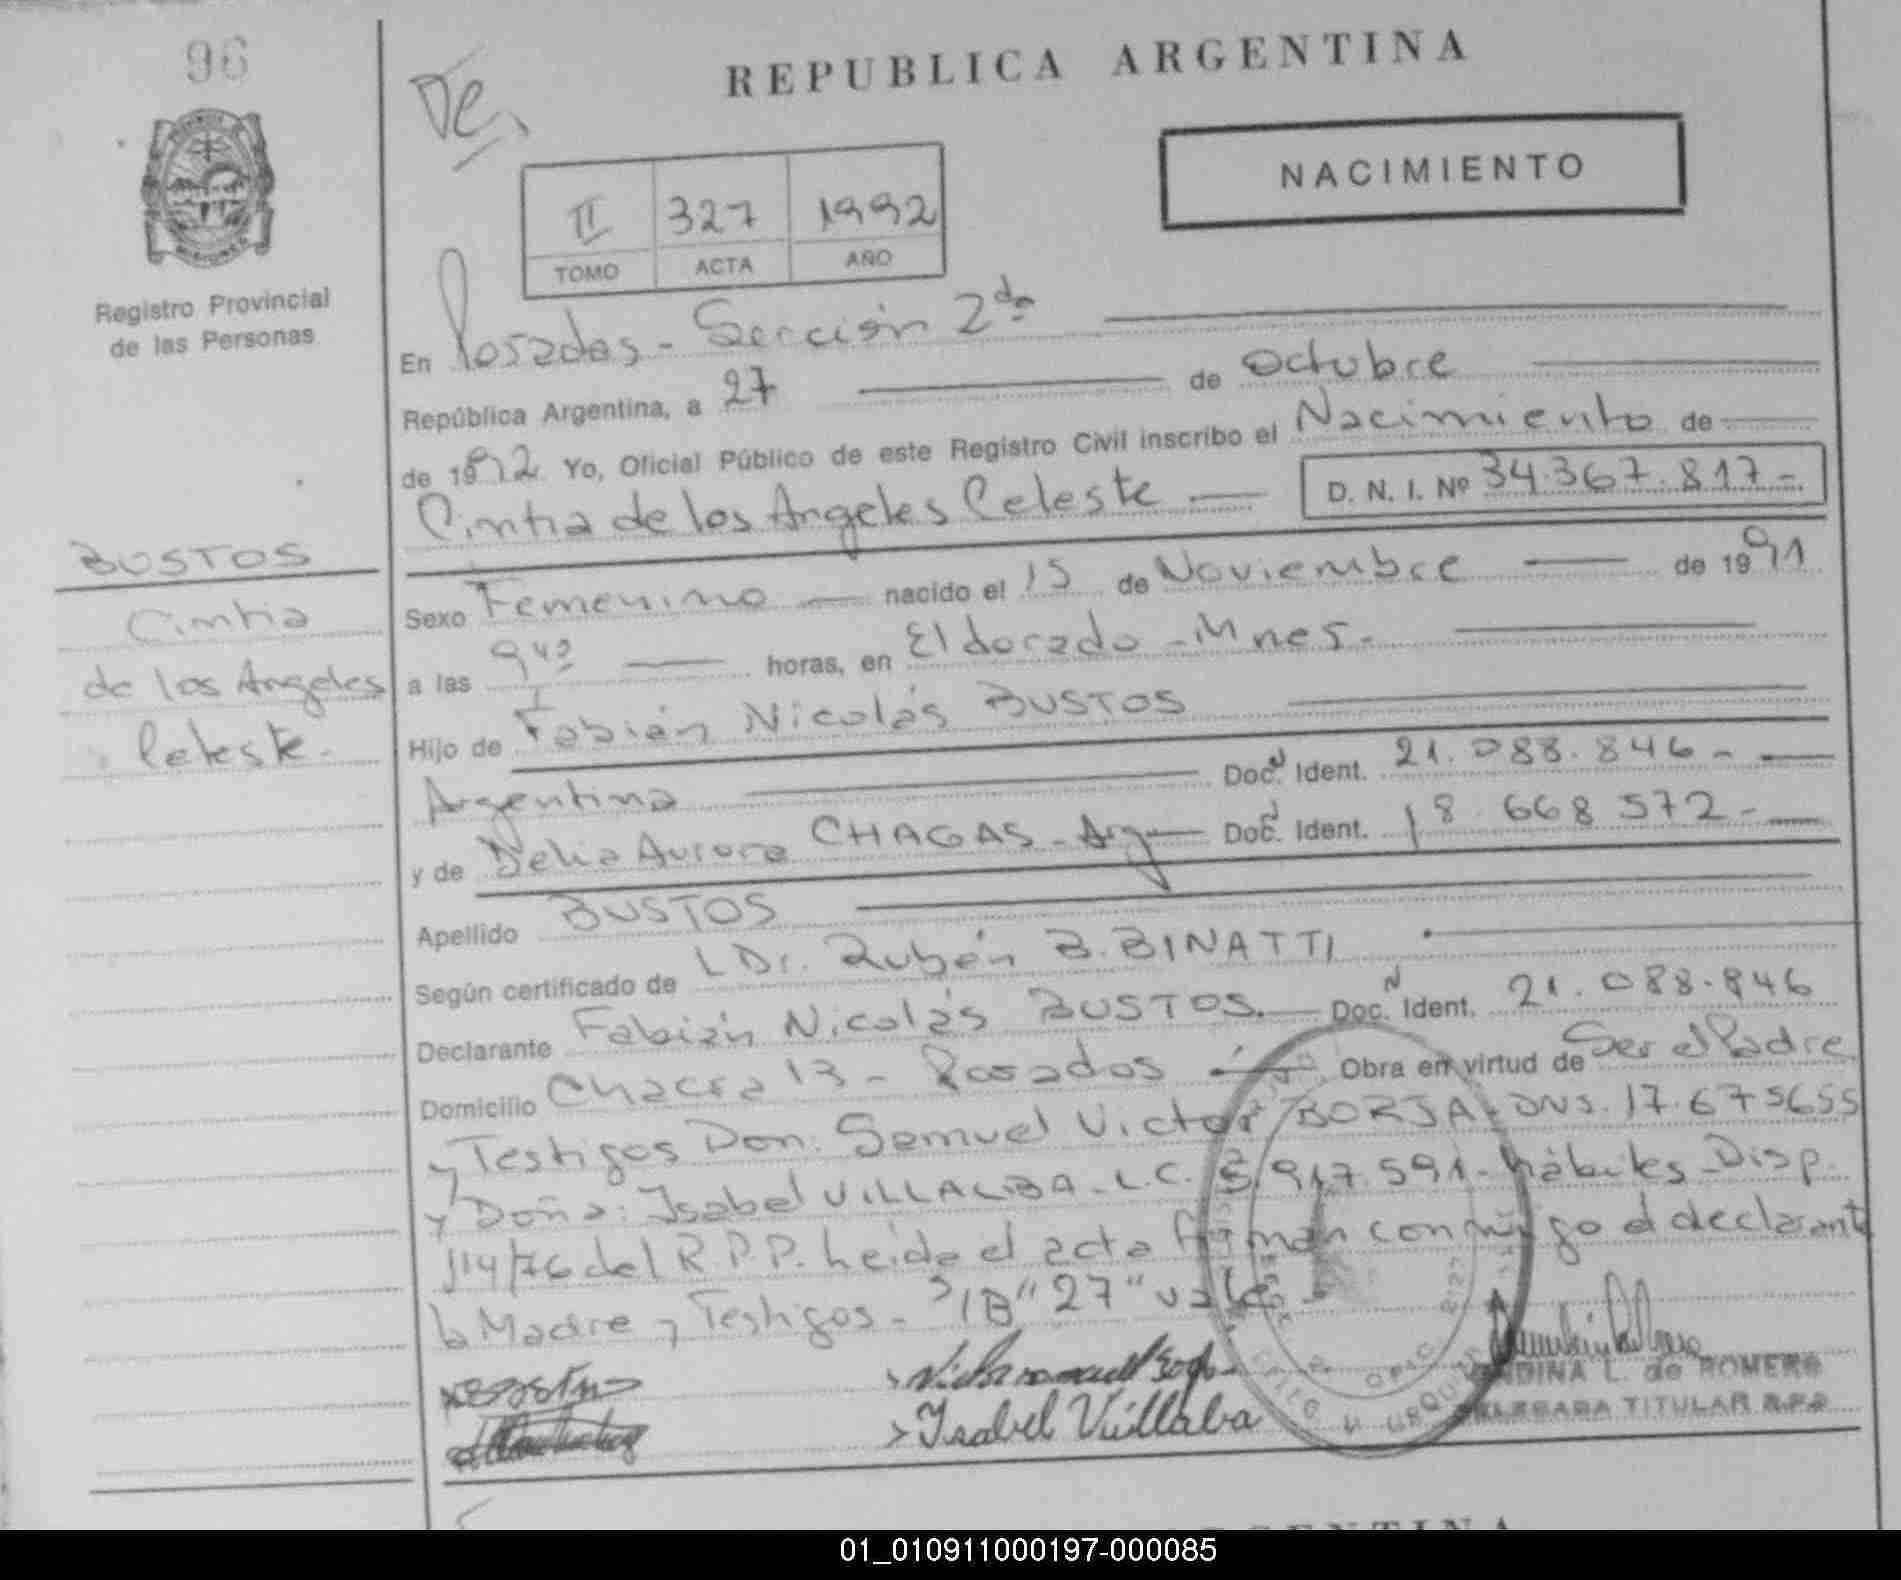 96
REPUBLICA ARGENTINA
NACIMIENTO
II 327 1992
TOMO ACTA AÑO
Registro Provincial
de las Personas
En Posadas - Sección 2da
República Argentina, a 27 de octubre
de 1992 Yo, Oficial Público de este Registro Civil inscribo el Nacimiento de
Cintia de los Angeles Celeste D. N. I. Nº 34.367.817-
BUSTOS
Cintia
de los Angeles
Celeste.
Sexo Femenino nacido el 15 de Noviembre de 1991
a las 9 40 horas, en Eldorado - Mnes.
Hijo de Fabián Nicolás BUSTOS
Argentina Doc. Ident. 21.088.846-
y de Delia Aurora CHAGAS - Arg Doc. Ident. 18.668 572-
Apellido BUSTOS
Según certificado de Dr. Rubén B. BINATTI
Declarante Fabián Nicolás BUSTOS. Doc. Ident. 21.088.846
Domicilio Chacra 13 - Posadas Obra en virtud de Ser el Padre
y Testigos Don: Samuel Victor BORJA - DNI. 17.675655
y Doña: Isabel VILLALBA - L.C. 5.917.591 - hábiles - Disp.
114/76 del R.P.P. Leida el acta firman conmigo el declarante
la Madre y Testigos - S/B "27" vale
Isabel Villalba
L. de ROMERO
DELEGADA TITULAR R.P.P
01_010911000197-000085